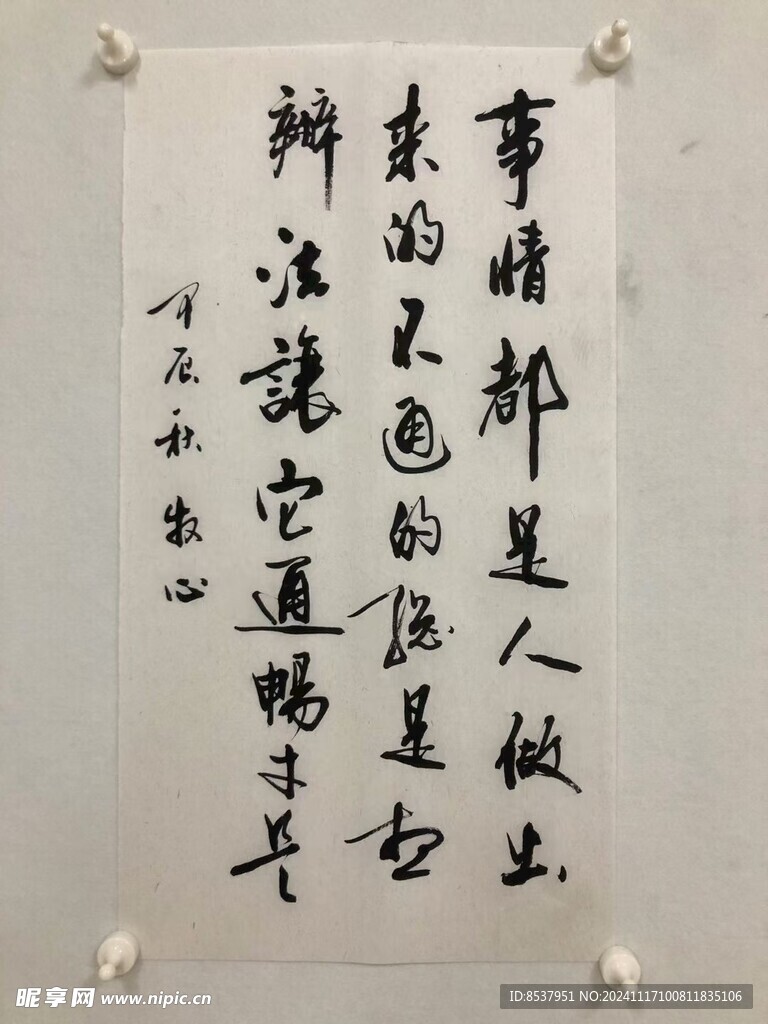 事情都是人做出
来的不通的總是想
辦法讓它通暢才是
甲辰秋 牧心
昵享网 www.nipic.cn
ID:8537951 NO:20241117100811835106